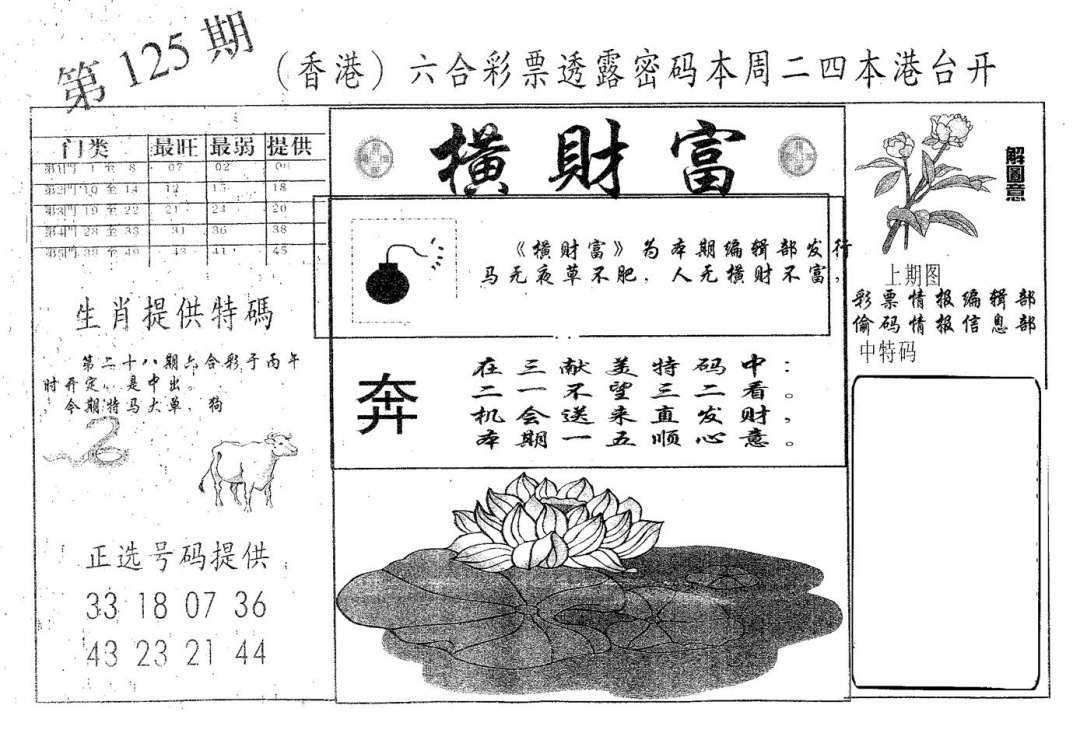 第125期
（香港）六合彩票透露密码本周二四本港台开
门类 最旺 最弱 提供
第1门 1 至 8 07 02 06
第2门 10 至 14 12 15 18
第3门 19 至 22 21 24 20
第4门 28 至 33 31 36 38
第5门 38 至 49 43 41 45
生肖提供特碼
第二十八期六合彩于丙午
时开定，是中出。
，令期特马大单，狗
正选号码提供
33 18 07 36
43 23 21 44
橫財富
《横财富》为本期编辑部发行
马无夜草不肥，人无横财不富，
奔
在三献美特码中：
二一不望三二看。
机会送来直发财，
本期一五顺心意。
解圖意
上期图
彩票情报编辑部
偷码情报信息部
中特码